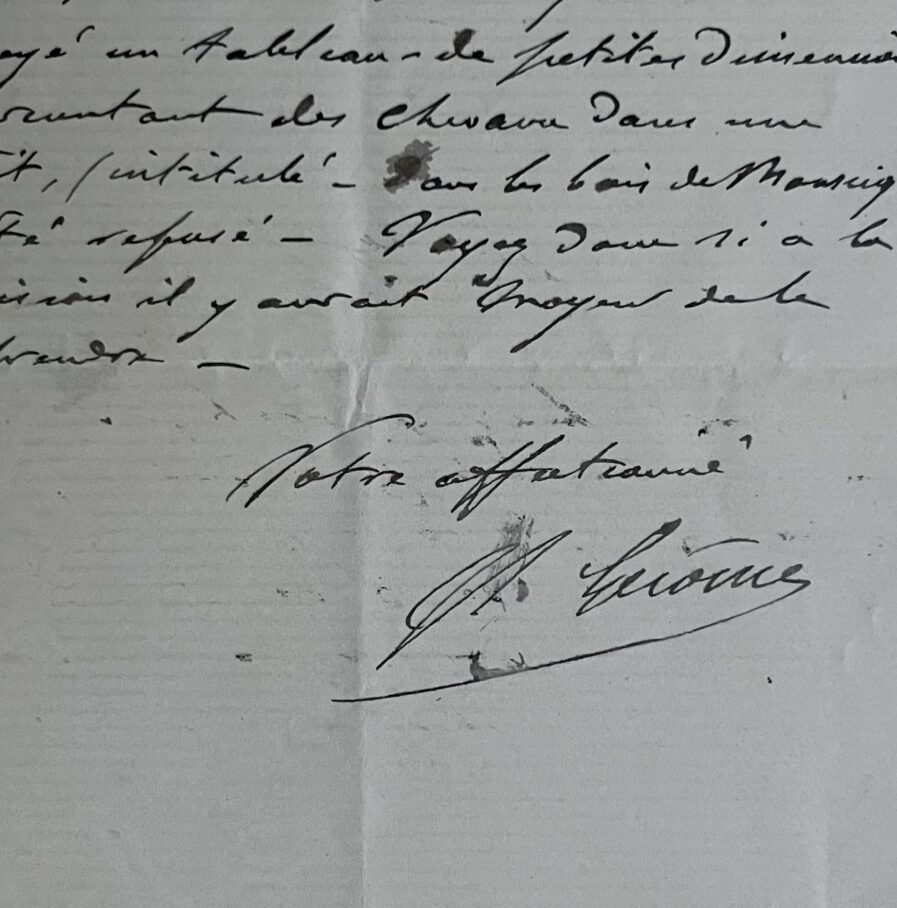 oyé un tableau de petites dimensio
sentant des chevaux dans une
t, (intitulé - Dans les bois de Monseig
té refusé - Voyez donc si a la
ision il y aurait moyen de le
prendre -
Votre affectionné
JL Gerôme